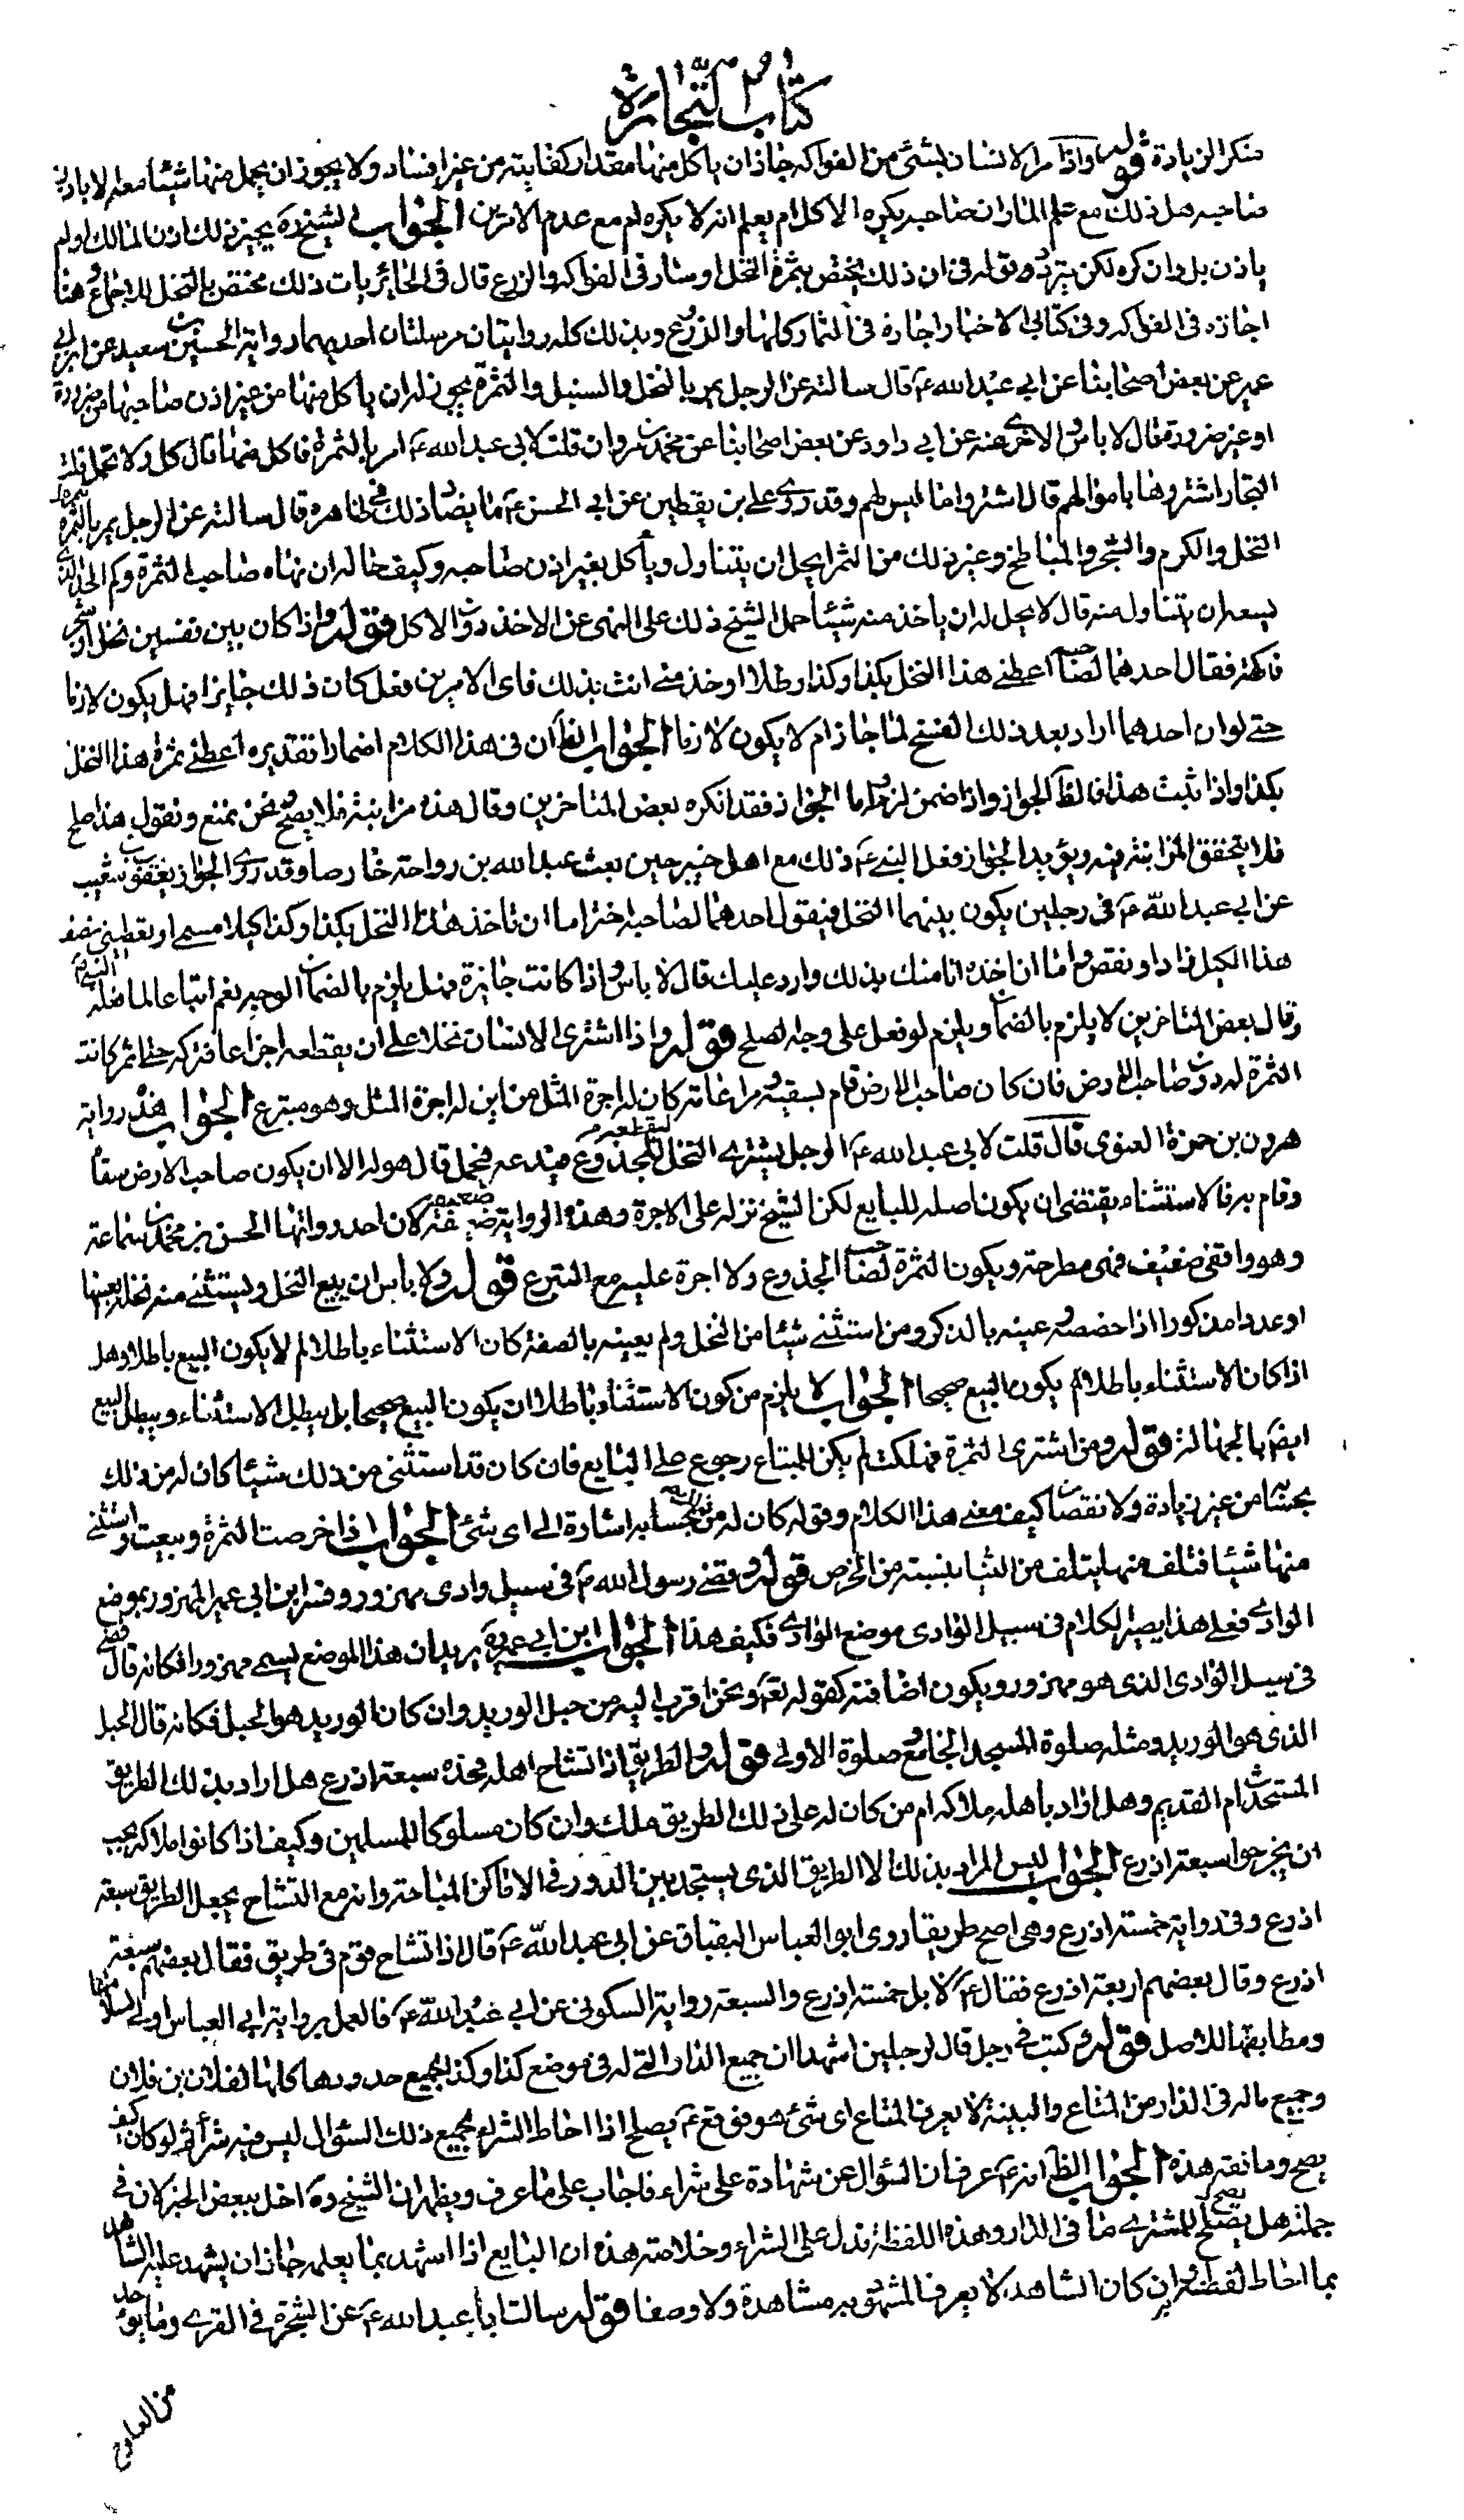 كتاب التجارة
منكر الزيادة قوله واذا مر الانسان بشئ من الفواكه جاز ان ياكل منها مقدار كفايته من غير افساد ولا يجوز ان يحمل منها شيئا معه الا باذن
صاحبه هل ذلك مع علم المار ان صاحبه يكره الاكل ام يعلم انه لا يكره ام مع عدم الامرين الجواب الشيخ ره يجيز ذلك اذن المالك او لم
ياذن بل وان كره لكن يتردد قوله في ان ذلك يختص بثمرة النخل او سار في الفواكه والزرع قال في الحائريات ذلك مختص بالنخل للاجماع وهنا
اجازه في الفواكه وفي كتابي الاخبار اجازه في الثمار كلها والزرع وبذلك كله روايتان مرسلتان احديهما رواية الحسين بن سعيد عن ابن ابي
عمير عن بعض اصحابنا عن ابي عبد الله ع قال سالته عن الرجل يمر بالنخل والسنبل والثمرة يجوز له ان ياكل منها من غير اذن صاحبها من ضرورة
او غير ضرورة قال لا باس والاخرى عنه عن ابي داود عن بعض اصحابنا عن محمد بن مروان قلت لابي عبد الله ع امر بالثمرة فاكل منها قال كل ولا تحمل قلت
التجار اشتروها باموالهم قال اشتروا ما ليس لهم وقد روى علي بن يقطين عن ابي الحسن ع ما يضاد ذلك في ظاهره قال سالته عن الرجل يمر بالثمرة
النخل والكرم والشجر والمباطخ وغير ذلك من الثمر ايحل ان يتناول وياكل بغير اذن صاحبه وكيف حاله ان نهاه صاحب الثمرة وكم الحد الذي
يسعه ان يتناوله منه قال لا يحل له ان ياخذ منه شيئا حمل الشيخ ذلك على النهى عن الاخذ دون الاكل قوله واذا كان بين نفسين نخل او شجر
فاكهة فقال احدهما لصاحبه اعطني هذا النخل بكذا وكذا رطلا او خذ مني انت بذلك فاى الامرين فعل كان ذلك جايزا فهل يكون لازما
حتى لو ان احدهما اراد بعد ذلك الفسخ لما جاز ام لا يكون لازما الجواب الظ ان في هذا الكلام اضمارا تقديره اعطني ثمرة هذا النخل
بكذا واذا ثبت هذا فالظ الجواز واذا ضمن لزم اما الجواز فقد انكره بعض المتاخرين وقال هذه مزابنة فلا يصح ونحن نمنع ونقول هذا صلح
فلا يتحقق المزابنة فيه ويؤيد الجواز فعل النبي ع ذلك مع اهل خيبر حين بعث عبد الله بن رواحة خارصا وقد روى الجواز يعقوب بن شعيب
عن ابي عبد الله ع في رجلين يكون بينهما النخل فيقول احدهما لصاحبه اختر اما ان تاخذ هذا النخل بكذا وكذا كيلا مسمى او تعطيني نصف
هذا الكيل زاد او نقص واما ان اخذه انا منك بذلك وارد عليك قال لا باس واذا كانت جايزة فهل يلزم بالضمان الوجه نعم اتباعا لما فعله النبي ع
وقال بعض المتاخرين لا يلزم بالضمان ويلزم لو فعل على وجه الصلح قوله واذا اشترى الانسان نخلا على ان يقطعه اجذاعا فتركه حتى اثمر كانت
الثمرة له دون صاحب الارض فان كان صاحب الارض قام بسقيه ومراعاته كان له اجرة المثل من اين له اجرة المثل وهو متبرع الجواب هذه رواية
هرون بن حمزة الغنوى قال قلت لابي عبد الله ع الرجل يشترى النخل ليقطعه للجذوع فيدعه فيحمل قال هو له الا ان يكون صاحب الارض سقاه
وقام به فالاستثناء يقتضى ان يكون اصله للبايع لكن الشيخ نزله على الاجرة وهذه الرواية ضعيفة لان احد رواتها الحسن بن محمد بن سماعة
وهو واقفى ضعيف فهى مطرحة ويكون الثمرة لصاحب الجذوع ولا اجرة عليه مع التبرع قوله ولا باس ان يبيع النخل ويستثنى منه نخلة بعينها
او عددا مذكورا اذا خصصه وعينه بالذكر ومن استثنى شيئا من النخل ولم يعينه بالصفة كان الاستثناء باطلا لم لا يكون البيع باطلا وهل
اذا كان الاستثناء باطلا لم يكون البيع صحيحا الجواب لا يلزم من كون الاستثناء باطلا ان يكون البيع صحيحا بل يبطل الاستثناء ويبطل البيع
ايضا بالجهالة قوله ومن اشترى الثمرة فهلكت لم يكن للمبتاع رجوع على البايع فان كان قد استثنى من ذلك شيئا كان له من ذلك
بحسابه من غير زيادة ولا نقصان كيف معنى هذا الكلام وقوله كان له من ذلك بحسابه اشارة الى اى شئ الجواب اذا خرصت الثمرة وبيعت واستثنى
منها شيئا فتلف منها يتلف من الثنيا بنسبته من الخرص قوله وقضى رسول الله ص في سيل وادى مهزور وفسر ابن ابي عمير المهزور بموضع
الوادى فعلى هذا يصير الكلام في سيل الوادى موضع الوادى فكيف هذا الجواب ابن ابي عمير ره يريد ان هذا الموضع يسمى مهزورا فكانه قال قضى
في سيل الوادى الذى هو مهزور ويكون اضافته كقوله تع ونحن اقرب اليه من حبل الوريد وان كان الوريد هو الحبل فكانه قال الحبل
الذى هو الوريد ومثله صلوة المسجد الجامع وصلوة الاولى قوله والطريق اذا تشاح اهله فحده سبعة اذرع هل اراد بذلك الطريق
المستحدث ام القديم وهل اراد باهله ملاكه ام من كان له على ذلك الطريق ملك وان كان مسلوكا للمسلمين وكيف اذا كانوا ملاكه يجب
ان يخرجوا سبعة اذرع الجواب ليس المراد بذلك الا الطريق الذى يستجد بين الدور في الاماكن المباحة وانه مع التشاح يجعل الطريق سبعة
اذرع وفي رواية خمسة اذرع وهى اصح طريقا روى ابو العباس البقباق عن ابي عبد الله ع قال اذا تشاح قوم في طريق فقال بعضهم سبعة
اذرع وقال بعضهم اربعة اذرع فقال ع لا بل خمسة اذرع والسبعة رواية السكوني عن ابي عبد الله ع فالعمل برواية ابي العباس اولى لسلامتها
ومطابقتها للاصل قوله وكتب في رجل قال لرجلين اشهدا ان جميع الدار التى له في موضع كذا وكذا بجميع حدودها كلها لفلان بن فلان
وجميع ماله في الدار من المتاع والبينة لا يعرف المتاع اى شئ هو فوقع ع يصلح اذا احاط الشراء بجميع ذلك السؤال ليس فيه شراء فلو كان كيف
يصح وما فقه هذه الجواب الظ انه ع عرف ان السؤال عن شهادة على شراء فاجاب على ما عرف ويظهر ان الشيخ ره اخل ببعض الخبر لان في
جملته هل يصلح للمشترى ما في الدار وهذه اللفظة تدل على الشراء وخلاصة هذه ان البايع اذا اشهد بما يعلمه جاز ان يشهد عليه الشاهد
بما احاط لفظه به وان كان الشاهد لا يعرف المشهود به مشاهدة ولا وصفا قوله سالت ابا عبد الله ع عن الشجرة في القرى وما يؤخذ